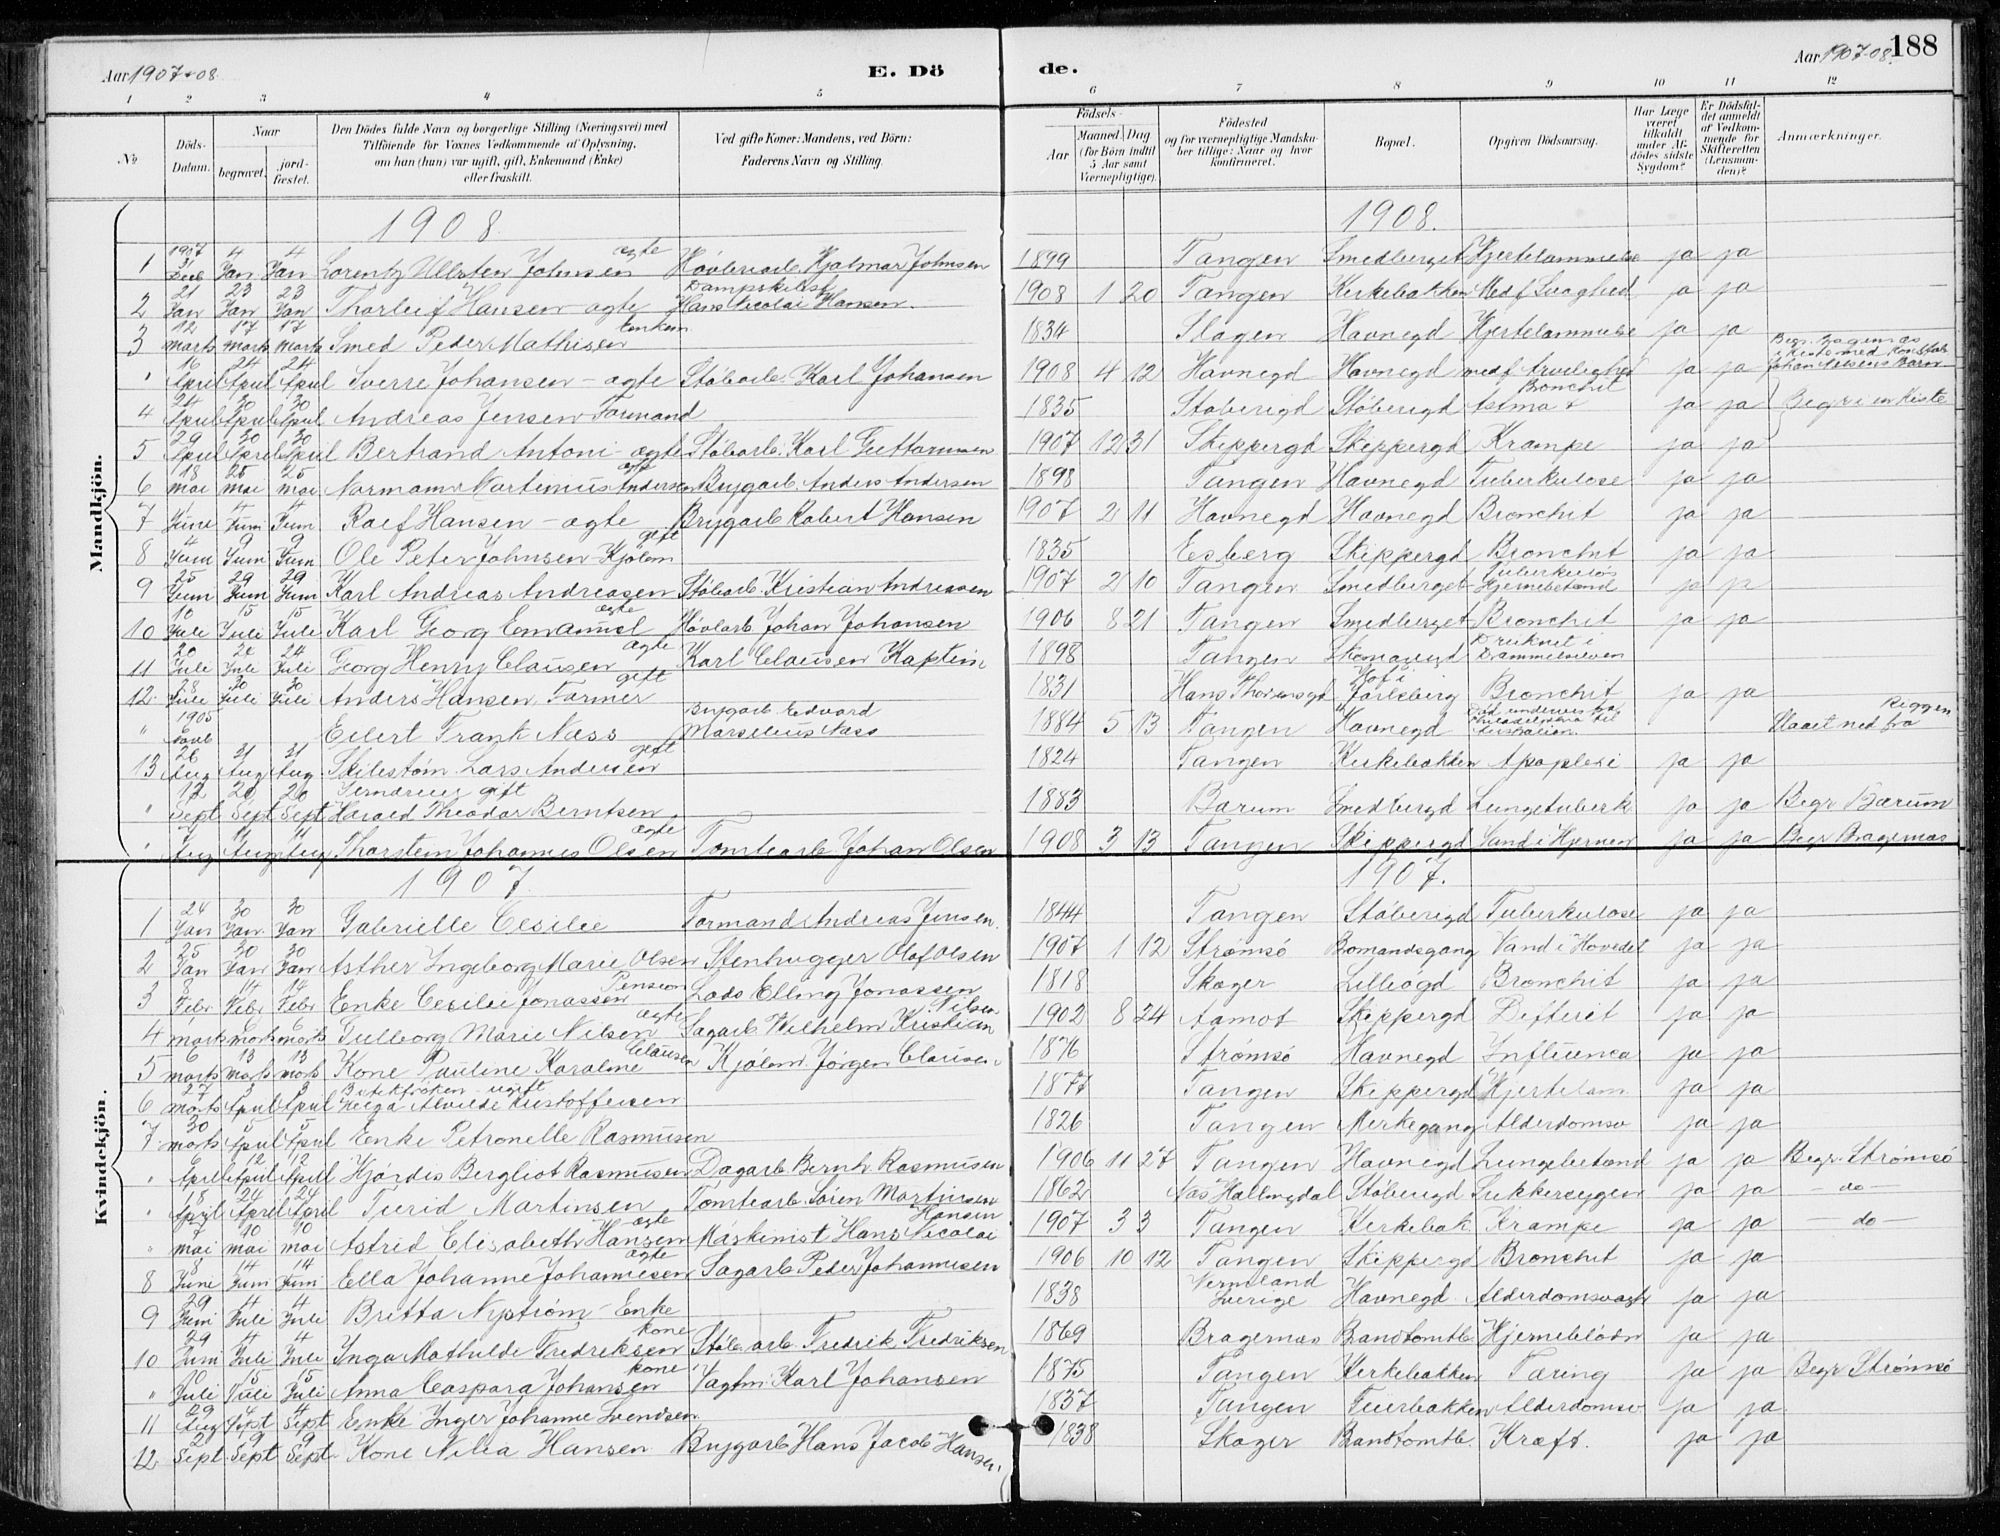 Aar 1907-08
E. Dö
de.
Aar 1907-08.
188
1 2 3 4 5 6 7 8 9 10 11 12
No
Döds-Datum.
Naar
begravet.
jordfæstet.
Den Dödes fulde Navn og borgerlige Stilling (Næringsvei) med
Tilföiende for Voxnes Vedkommende af Oplysning,
om han (hun) var ugift, gift, Enkemand (Enke)
eller fraskilt.
Ved gifte Koner: Mandens, ved Börn:
Faderens Navn og Stilling.
Födsels-
Aar
Maaned. Dag
(for Börn indtil
5 Aar samt
Værnepligtige).
Födested
og for værnepligtige Mandskaber
tillige: Naar og hvor
konfirmeret.
Bopæl.
Opgiven Dödsaarsag.
Har Læge
været
tilkaldt
under Afdödes
sidste
Sygdom?
Er Dödsfaldet
anmeldt
af Vedkommende
for
Skifteretten
(Lensmanden)?
Anmærkninger.
Mandkjön.
1908. 1908.
1 1907 31 Decb 4 Jan 4 Jan Lorentz Ullsten Johnsen ægte Høvleriarb. Hjalmar Johnsen 1899 Tangen Smedberget Hjertelammelse ja ja
2 21 Jan 23 Jan 23 Jan Thorleif Hansen - ægte Hans Nicolai Hansen 1908 1 20 Tangen Kirkebakken Medf Svaghed ja ja
3 12 marts 17 marts 17 marts Smed Peder Mathisen Enkem 1834 Slagen Havnegd Hjertelammelse ja ja
" 16 April 24 April 24 April Sverre Johansen - ægte Støbarb. Karl Johansen 1908 4 12 Havnegd Havnegd medf ja ja
4 24 April 30 April 30 April Andreas Jensen Formand 1835 Støberigd Støberigd Astma & Bronchit ja ja Begr i en Kiste
5 29 April 30 April 30 April Bertrand Antoni - ægte Støbarb. Karl 1907 12 31 Skippergd Skippergd Krampe ja ja
6 18 mai 25 mai 25 mai Martinius Andersen ægte Brygarb. Anders Andersen 1898 Tangen Havnegd Tuberkulose ja ja
7 Juni 4 Juni 4 Juni Hansen - ægte Brygarb Robert Hansen 1907 2 11 Havnegd Havnegd Bronchit ja ja
8 4 Juni 9 Juni 9 Juni Ole Peter Johnsen gift 1835 Skippergd Bronchit ja ja
9 25 Juni 29 Juni 29 Juni Karl Andreas Andreasen Støbarb. Kristian Andreasen 1907 2 10 Tangen Smedberget Tuberkuløs Hjernebetænd ja ja
10 10 Juli 15 Juli 15 Juli Karl Georg Emanuel ægte Høvlarb Johan Johansen 1906 8 21 Tangen Smedberget Bronchit ja ja
11 20 Juli 24 Juli 24 Juli Georg Henry Clausen ægte Karl Clausen Kaptein 1898 Tangen Druknet i Drammelselven
12 28 Juli 30 Juli 30 Juli Anders Hansen, Farmer gift 1831 Hof i Jarlsberg Bronchit ja ja
" 1905 Eilert Frank Næss Brygarb Edvard Marselius Næss 1884 5 13 Tangen Havnegd Philadelphia til Australien Slaaet ned fra Riggen
13 26 Aug 31 Aug 31 Aug Lars Andersen gift 1824 Tangen Kirkebakken Apoplexi ja ja
" 12 Sept 20 Sept 20 Sept Harald Theodor Berntsen gift 1883 Bærum Smedbergd Lungetuberk ja ja Begr. Bærum
" 7 Aug 11 Aug 11 Aug Thorstein Johannes Olsen ægte Tomtearb Johan Olsen 1908 3 13 Tangen Skippergd Vand i Hjernen ja ja Begr Bragernæs
Kvindekjön.
1907. 1907.
1 24 Jan 30 Jan 30 Jan Gabrielle Cesilie Formand Andreas Jensen. 1844 Tangen Støberigd Tuberkulose ja ja
2 25 Jan 30 Jan 30 Jan Asther Ingeborg Marie Olsen Stenhugger Olaf Olsen 1907 1 12 Strømsö Bomandsgang Vand i Hovedet ja ja
3 8 Febr 14 Febr 14 Febr Enke Cesilie Jonassen Pension Lods Elling Jonassen 1818 Skoger Lilleögd Bronchit ja ja
4 marts 6 marts 6 marts Gulborg Marie Nilsen ægte Sagarb Wilhelm Kristian Nilsen 1902 8 24 Aamot Skippergd Difterit ja ja
5 6 marts 13 marts 13 marts Kone Pauline Karoline Clausen Kjölm Jörgen Clausen 1876 Strømsö Havnegd Influenca ja ja
6 27 marts 3 April 3 April Butikfröken - ugift Helga Alvilde Kristoffersen 1877 Tangen Skippergd Hjertelam ja ja
7 30 marts 5 April 5 April Enke Petronelle Rasmusen 1826 Tangen Merkegang Alderdomsv ja ja
" 6 April 12 April 12 April Hjördis Bergliot Rasmusen Dagarb. Bernh Rasmusen 1906 11 27 Tangen Havnegd Lungebetænd ja ja Begr. Strømsö
" 18 April 24 April 24 April Turid Martinsen Tomtearb Sören Martinsen 1862 Næs Hallingdal Støberigd Sukkersygen ja ja - do -
" 7 mai 10 mai 10 mai Astrid Elisabeth Hansen ægte Maskinist Hans Nicolai Hansen 1907 3 3 Tangen Kirkebak Krampe ja ja - do -
8 8 Juni 14 Juni 14 Juni Ella Johanne Johannesen ægte Sagarb Peder Johannesen 1906 10 12 Tangen Skippergd Bronchit ja ja
9 29 Juni 4 Juli 4 Juli Britta Nyström - Enke 1838 Vermeland Sverige Havnegd Alderdomsvagh ja ja
10 29 Juni 4 Juli 4 Juli Inga Mathilde Fredriksen kone Støb. arb Fredrik Fredriksen 1869 Bragernæs Brandtomtb. Hjerneblödn ja ja
" 10 Juli 15 Juli 15 Juli Anna Caspara Johansen kone Vagtm. Karl Johansen 1875 Tangen Kirkebakken Tæring ja ja Begr Strømsö
11 29 Aug 4 Sept 4 Sept Enke Inger Johanne Svendsen 1837 Tangen Tuerbakken Alderdomsv ja ja
12 2 Sept 9 Sept 9 Sept Kone Nilia Hansen Brygarb Hans Jacob Hansen. 1838 Skoger Brandtomtb. Kræft. ja ja